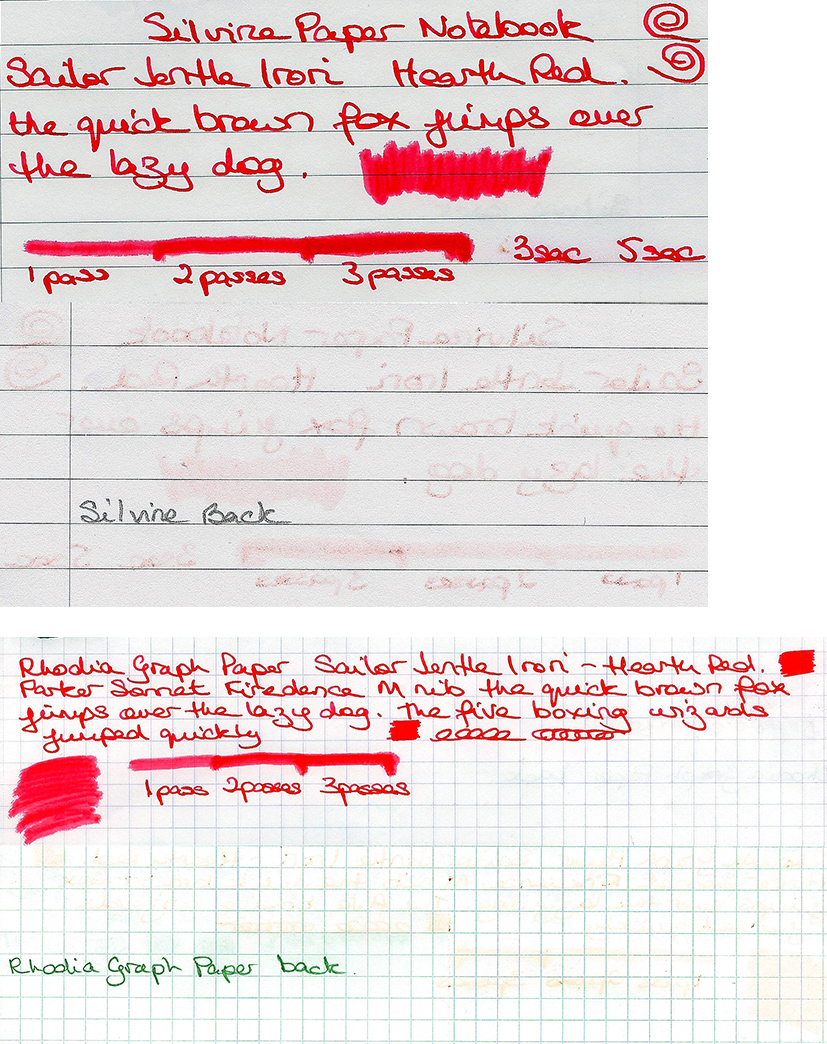 Silvine Paper Notebook
Sailor Jentle Irori Hearth Red.
the quick brown fox jumps over
the lazy dog.
3sec 5sec
1 pass 2 passes 3 passes
Silvine Back
Rhodia Graph Paper Sailor Jentle Irori - Hearth Red.
Parker Sonnet Firedance M nib the quick brown fox
jumps over the lazy dog. The five boxing wizards
jumped quickly
1 pass 2 passes 3 passes
Rhodia Graph Paper back.